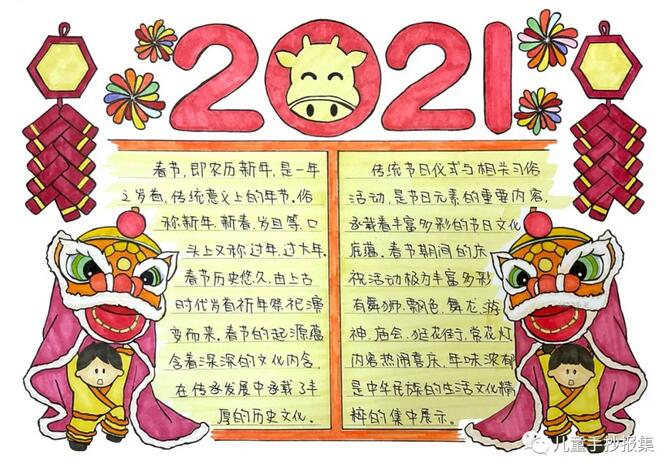 2021
春节,即农历新年,是一年
之岁首,传统意义上的年节。俗
称新年、新春、岁旦等,口
头上又称过年、过大年。
春节历史悠久,由上古
时代岁首祈年祭祀演
变而来。春节的起源蕴
含着深深的文化内含,
在传承发展中承载了丰
厚的历史文化。
传统节日仪式与相关习俗
活动,是节日元素的重要内容,
承载着丰富多彩的节日文化
底蕴。春节期间的庆
祝活动极为丰富多彩
有舞狮、飘色、舞龙、游
神、庙会、逛花街、赏花灯
内容热闹喜庆、年味浓郁
是中华民族的生活文化精
粹的集中展示。
儿童手抄报集